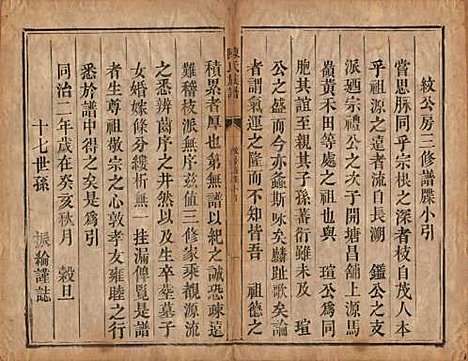 紋公房三修譜牒小引
嘗思脉同乎宗根之深者枝自茂人本
乎祖源之遠者流自長潮　鑑公之
派廼宗禮公之次于開塘昌舖上源馬
嶺黃禾田等處是也與　瑄公爲同
胞其誼至親子孫蕃衍雖未及　瑄
公之盛而今亦螽斯咏矣麟趾歌矣論
者謂氣運之隆而不知皆吾　祖德之
陳氏族譜
積累者厚也苟第無以紀之將親疎遠
近難稽枝派無序兹値三修家乘親源流
之悉辨齒序之井然以及生卒塋墓子
女婚嫁條分縷析無一挂漏傳覽是譜
者生尊祖敬宗之心敦孝友雍睦之行
悉於譜中得之矣是爲引
同治二年歲在癸亥秋月　穀旦
十七世孫　振綸謹誌